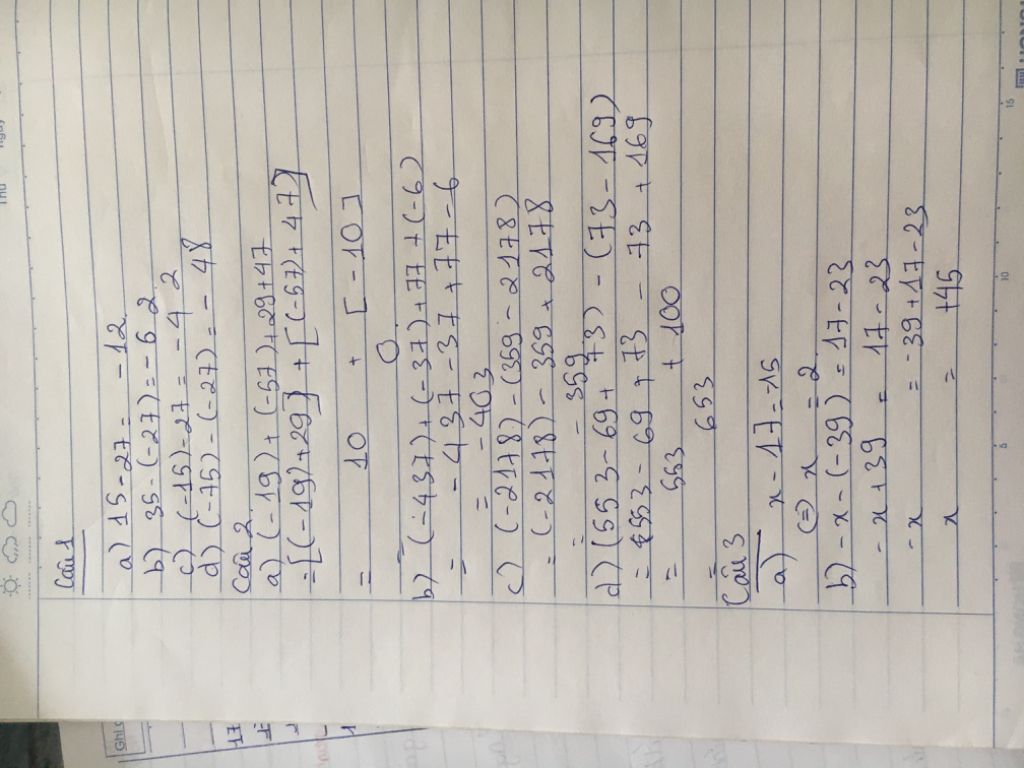 Câu 1
a) 15 - 27 = - 12
b) 35 - (-27) = - 6 2
c) (-15) - 27 = - 4 2
d) (-75) - (-27) = - 48
Câu 2
a) (-19) + (-57) + 29 + 47
= [(-19) + 29] + [(-57) + 47]
= 10 + [-10]
= 0
b) (-437) + (-37) + 77 + (-6)
= - 437 - 37 + 77 - 6
= - 403
c) (-2178) - (369 - 2178)
= (-2178) - 359 + 2178
= - 359
d) (553 - 69 + 73) - (73 - 169)
= 553 - 69 + 73 - 73 + 169
= 553 + 100
= 653
Câu 3
a) x - 17 = -15
(=) x = 2
b) - x - (-39) = 17 - 23
- x + 39 = 17 - 23
- x = - 39 + 17 - 23
x = +45